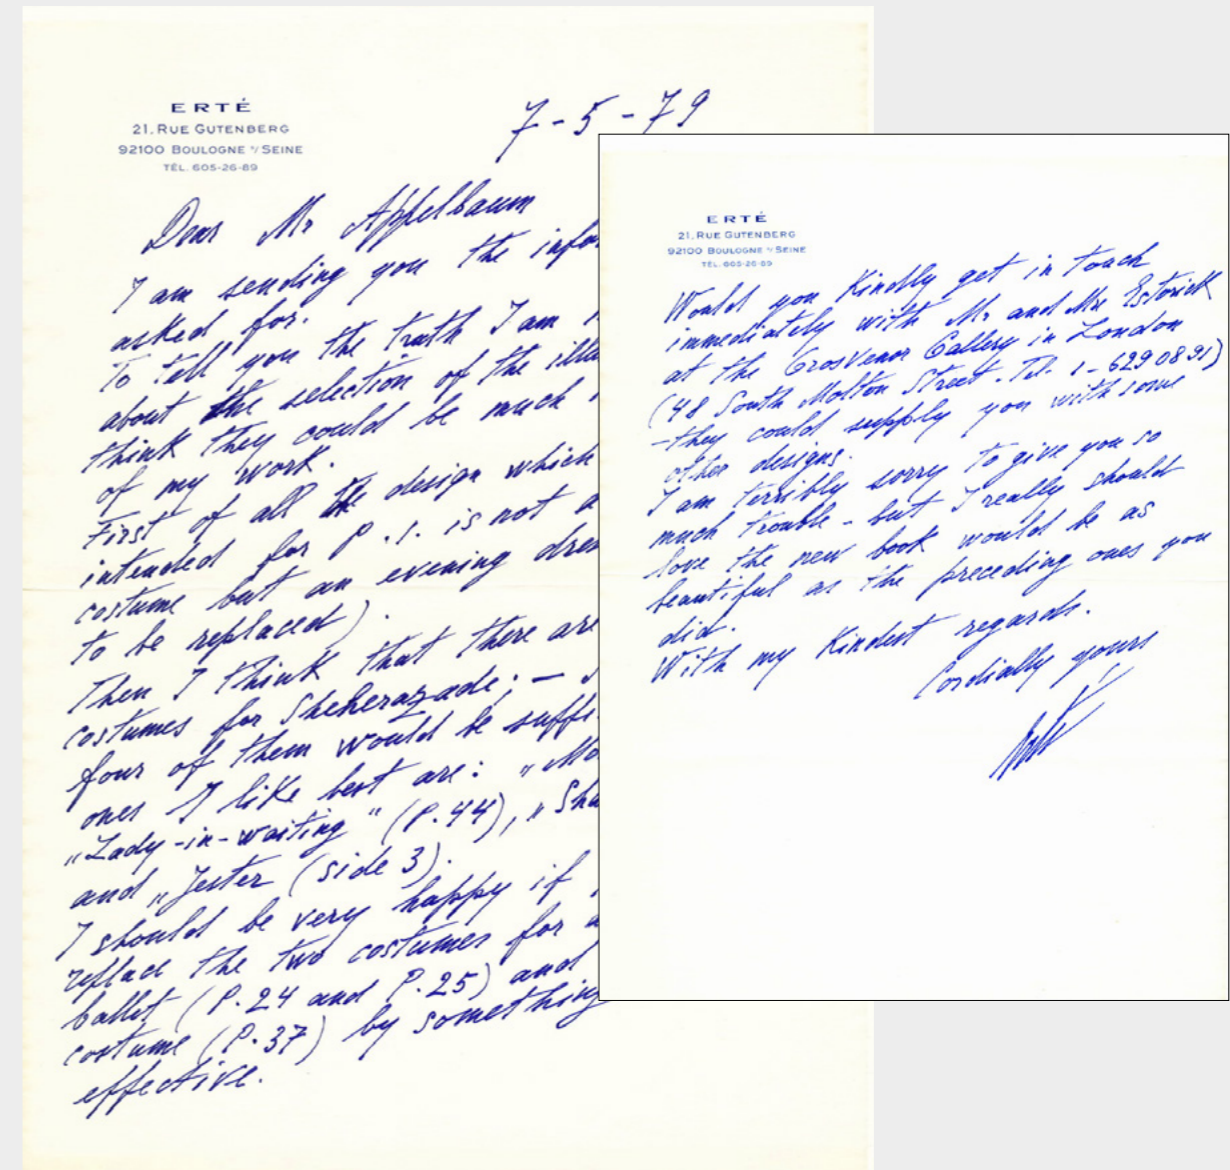 ERTÉ
21, RUE GUTENBERG
92100 BOULOGNE s/SEINE
TÉL. 605-26-89
7-5-79
Dear Mr Appelbaum
I am sending you the
asked for.
To tell you the truth I am
about the selection of the
think they could be much
of my work.
First of all the design which
intended for P.1. is not
costume but an evening
to be replaced).
Then I think that there are
costumes for Sheherazade; –
four of them would be
ones I like best are: „
„Lady-in-waiting" (P.44), „
and „Jester (side 3).
I should be very happy if
replace the two costumes for
ballet (P.24 and P.25) and
costume (P.37) by something
effective.
ERTÉ
21, RUE GUTENBERG
92100 BOULOGNE s/SEINE
TÉL. 605-26-89
Would you Kindly get in touch
immediately with Mr and Mrs Estorick
at the Grosvenor Gallery in London
(48 South Molton Street - Tel. 1-6290891)
-they could supply you with some
other designs.
I am terribly sorry to give you so
much trouble - but I really should
love the new book would be as
beautiful as the preceding ones you
did.
With my Kindest regards.
Cordially yours